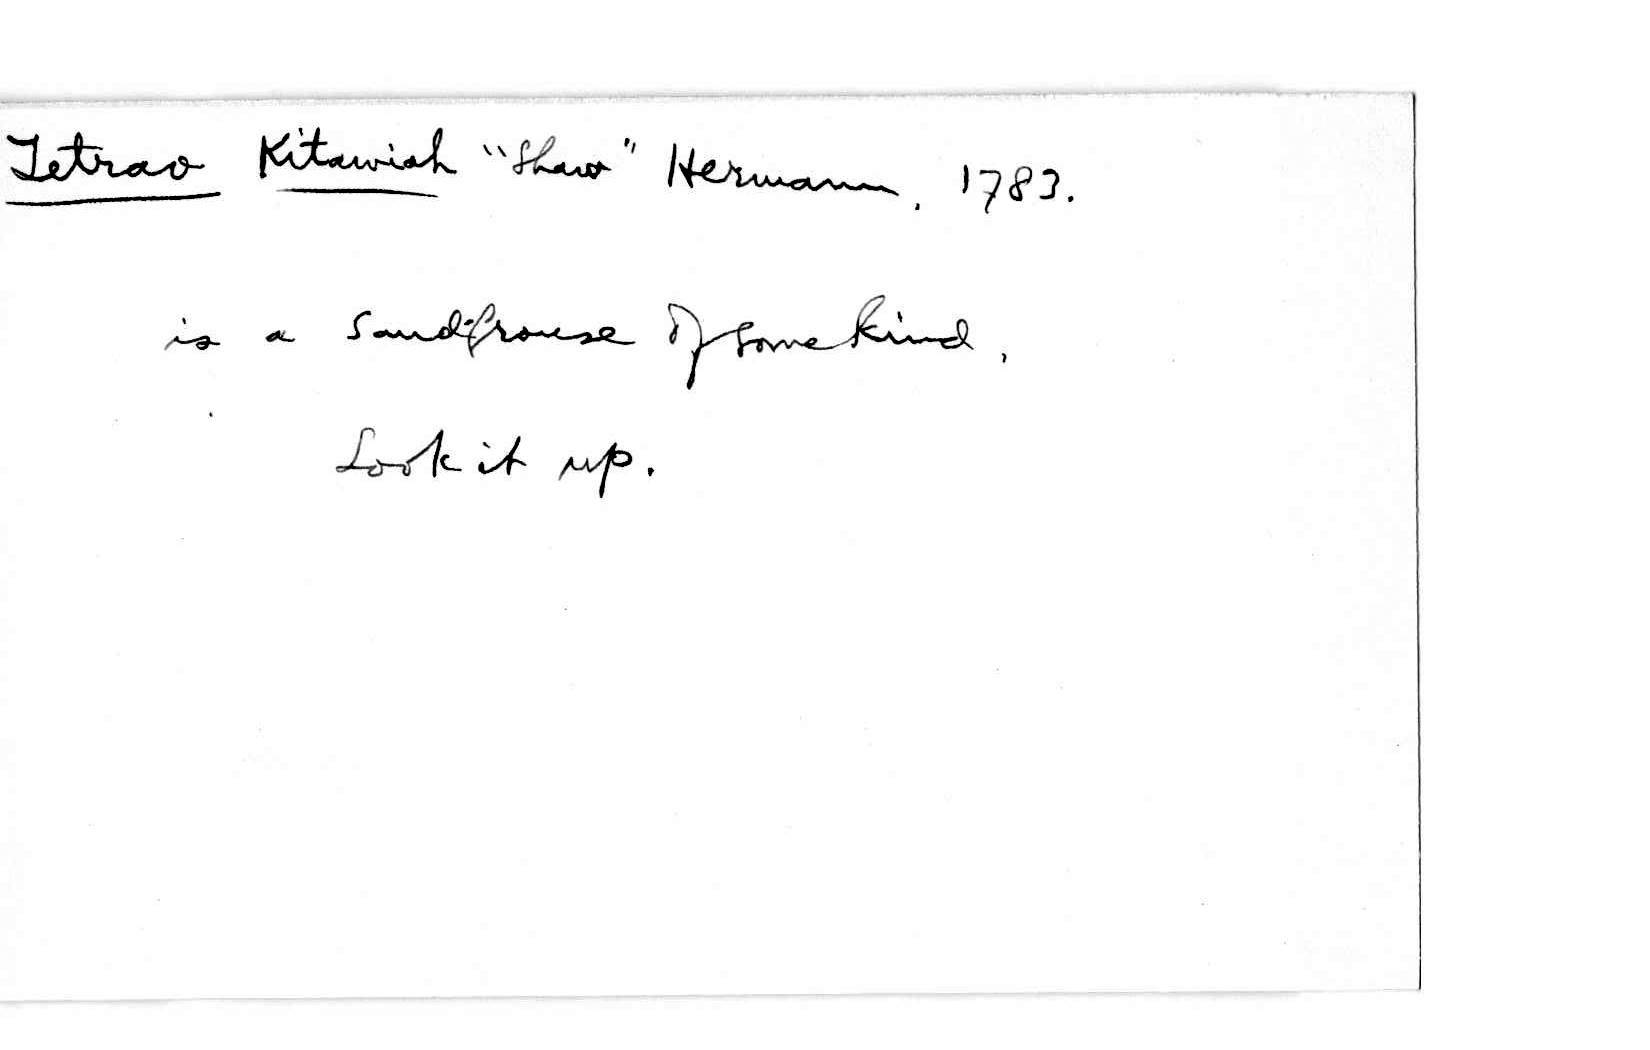 Tetrao Kitawiah "Shaw" Hermann, 1783.
is a Sandgrouse of some kind.
Look it up.